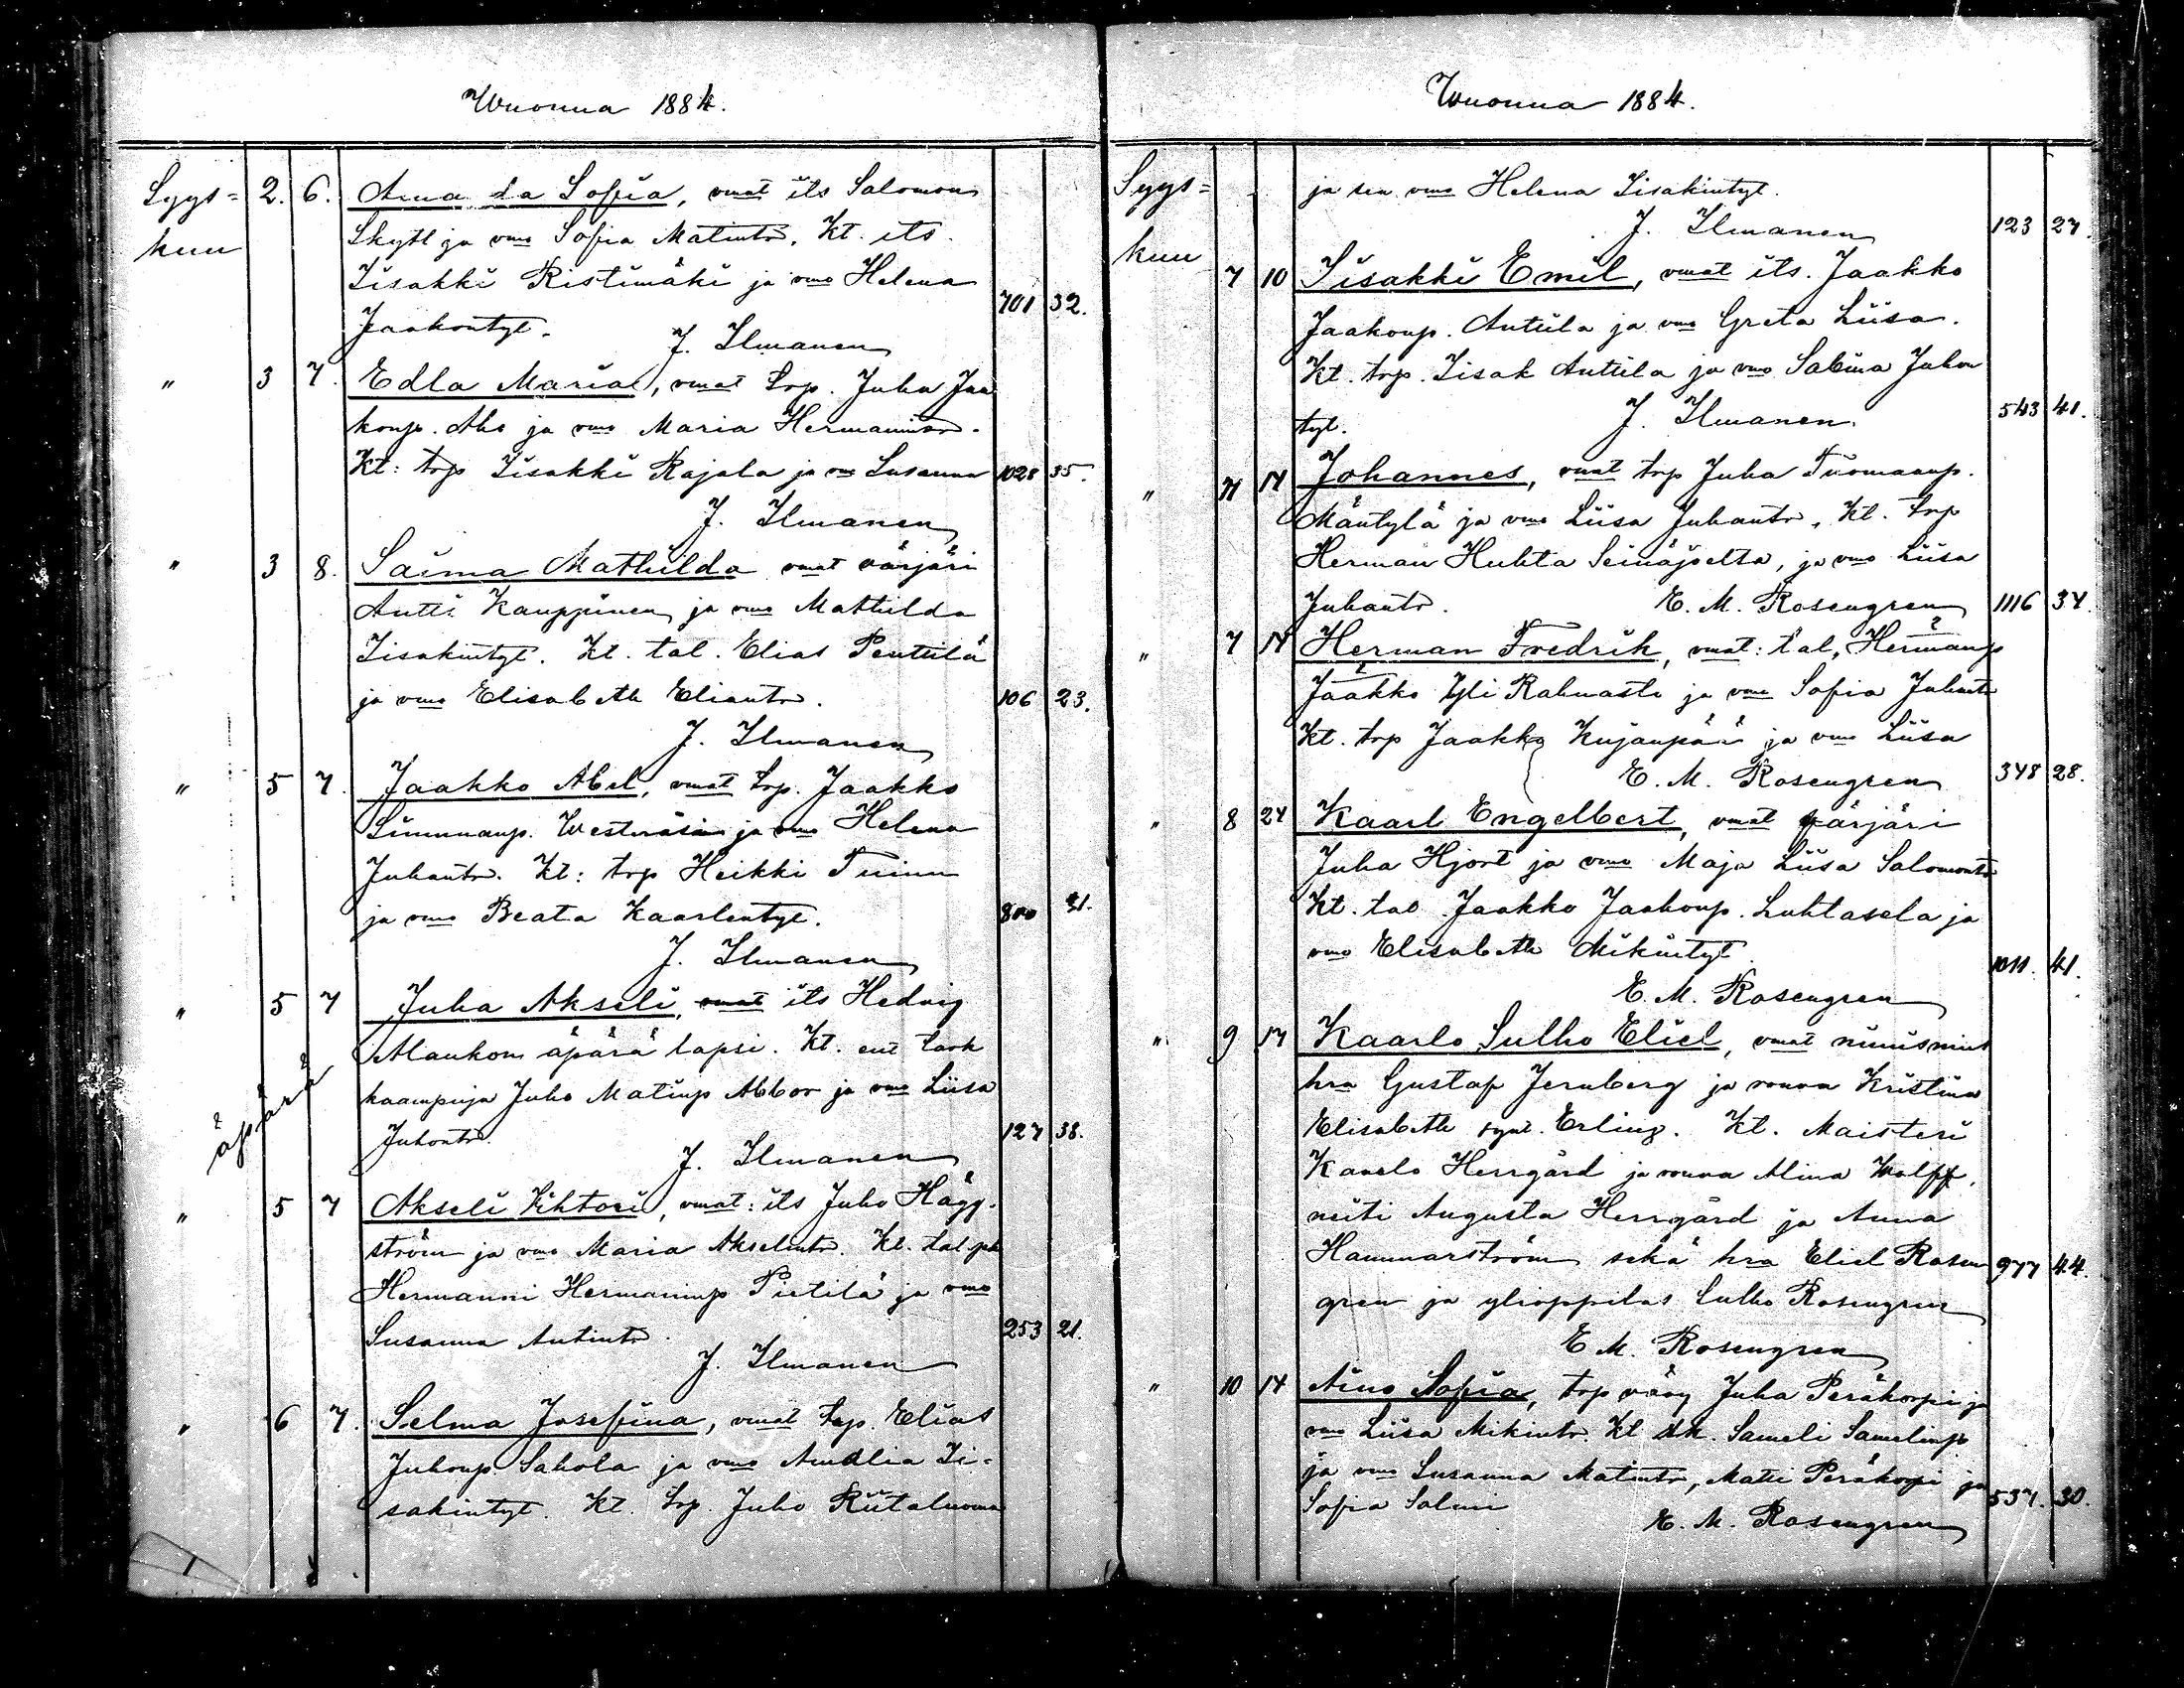 Wuonna 1884.
Syys= 2. 6. Amanda Sofia, vmat its Salomon
kuu Skytt ja vmo Sofia Matintr. Kt. its.
Iisakki Ristimäki ja vmo Helena 701 32.
Jaakontyt. J. Ilmanen
" 3 7. Edla Maria, vmat trp. Juha Jaa
konp. Aho ja vmo Maria Hermannintr.
Kt: trp Iisakki Rajala ja vmo Susanna 1028 35.
J. Ilmanen
" 3 8. Saima Mathilda vmat värjäri
Antti Kauppinen ja vmo Mathilda
Iisakintyt. Kt. tal. Elias Penttilä
ja vmo Elisabeth Eliantr. 106 23.
J. Ilmanen
" 5 7. Jaakko Abel, vmat trp. Jaakko
Simunanp. Westeräsi ja vmo Helena
Juhantr. Kt: trp Heikki Tuinu
ja vmo Beata Kaarlentyt. 800 21.
J. Ilmanen
" 5 7 Juha Akseli, vmat its Hedvig
Alankon äpärä lapsi. Kt. ent tark
äpärä kaampuja Juho Matinp Abbor ja vmo Liisa
Juhontr. 127 38.
J. Ilmanen
" 5 7 Akseli Vihtori, vmat: its Juho Hägg-
ström ja vmo Maria Akselintr. Kt. tal. pk
Hermanni Hermaninp Pietilä ja vmo
Susanna Antintr. 253 21.
J. Ilmanen
" 6 7. Selma Josefina, vmat trp. Elias
Juhonp. Sahola ja vmo Amalia Ii-
sakintyt. Kt. trp. Juho Riitaluoma
Wuonna 1884.
Syys= ja sen vmo Helena Iisakintyt.
kuu J. Ilmanen 123 27.
7 10 Iisakki Emil, vmat its. Jaakko
Jaakonp. Anttila ja vmo Greta Liisa.
Kt. trp. Iisak Anttila ja vmo Sabina Juhon
tyt. J. Ilmanen. 543 41.
" 7 14 Johannes, vmat trp Juha Tuomaanp.
Mäntylä ja vmo Liisa Juhantr. Kt. trp
Herman Huhta Seinäjoelta, ja vmo Liisa
Juhantr. E. M. Rosengren 1116 34.
" 7 14 Herman Fredrik, vmat: tal, Hermanp
Jaakko Yli Rahnasto ja vmo Sofia Juhantr
Kt. trp Jaakko Kujanpää ja vmo Liisa
E. M. Rosengren 348 28.
" 8 24 Kaarl Engelbert, vmat värjäri
Juha Hjort ja vmo Maja Liisa Salomontr
Kt. tal Jaakko Jaakonp. Luhtasela ja
vmo Elisabeth Mikintyt. 1011. 41.
E. M. Rosengren
" 9 14 Kaarlo Sulho Eliel, vmat nimismies
hra Gustaf Jernberg ja rouva Kristina
Elisabeth synt. Erling. Kt. Maisteri
Kaarlo Herrgård ja rouva Alina Wolff,
neiti Augusta Herrgård ja Anna
Hammarström sekä hra Eliel Rosen 977 44.
gren ja ylioppilas Sulho Rosengren
E. M. Rosengren
" 10 14 Aino Sofia, trp väry Juha Peräkorpi ja
vmo Liisa Mikintr. Kt Sameli Samelinp
ja vmo Susanna Matintr, Matti Peräkorpi ja
Sofia Salmi 537. 30.
E. M. Rosengren